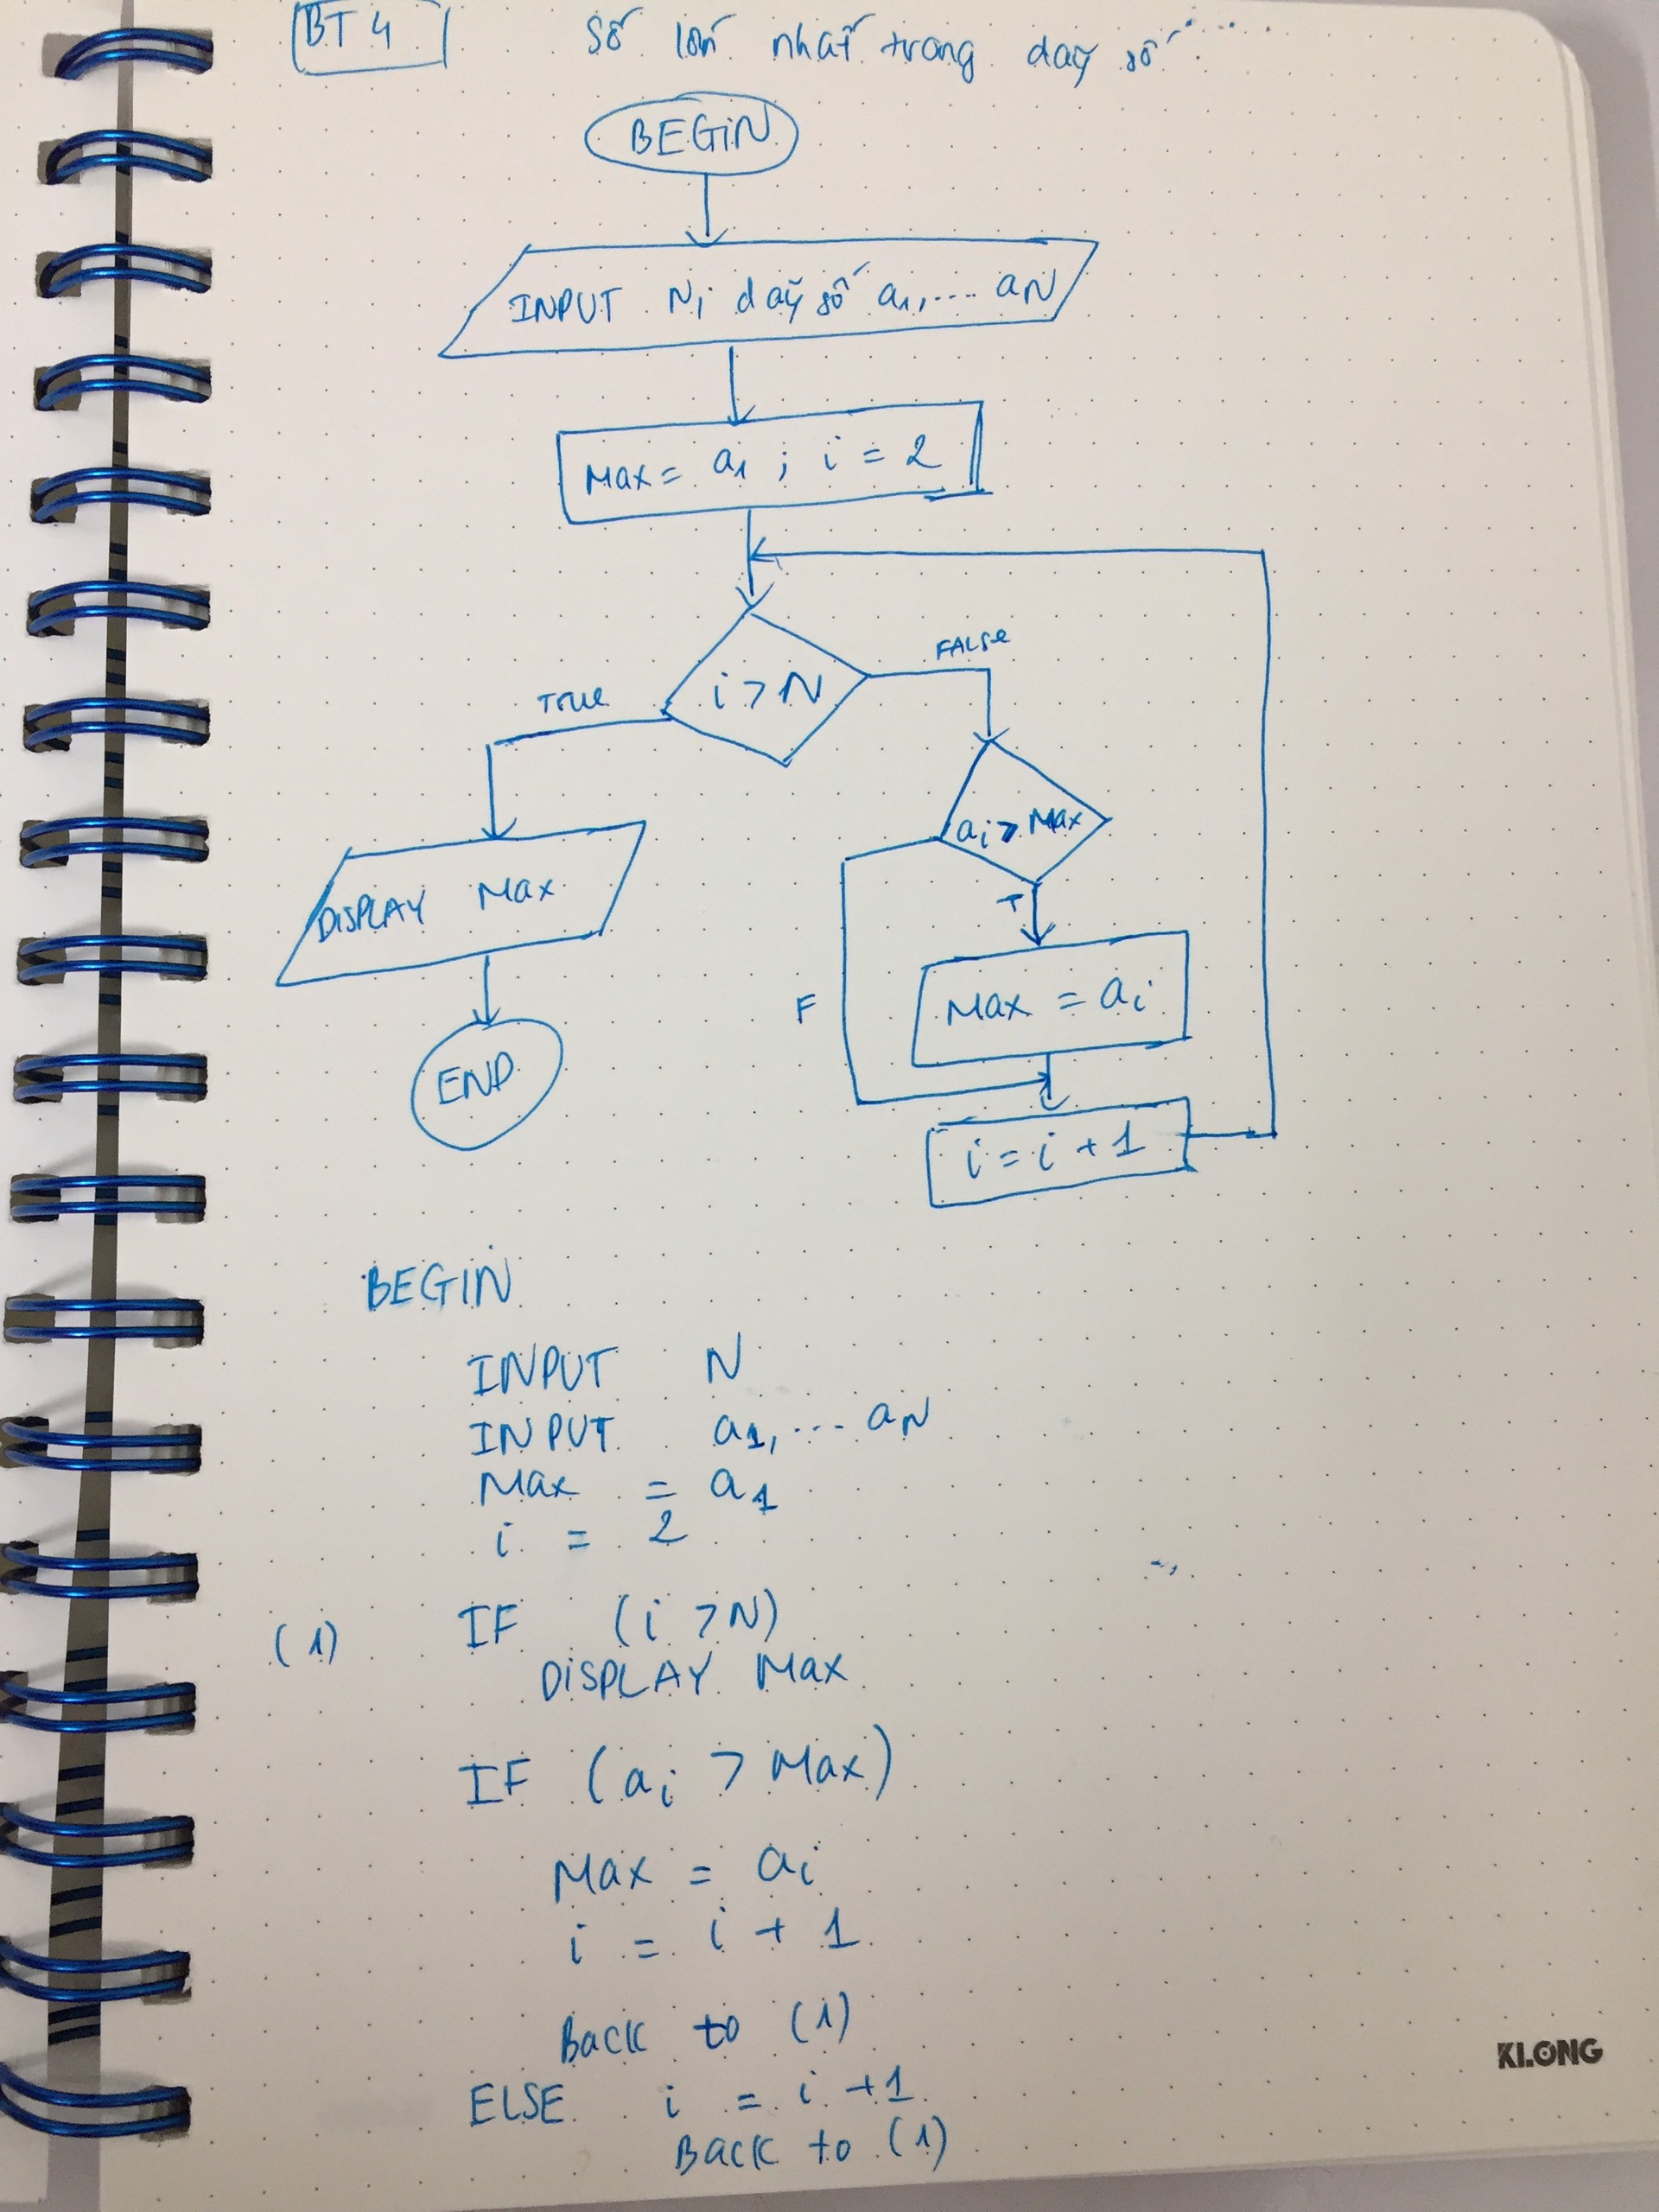 BT 4 Số lớn nhất trong dãy số
BEGIN
INPUT N; dãy số a1,... aN
Max = a1 ; i = 2
i > N
True
FALSE
ai > Max
T
F
Max = ai
i = i + 1
DISPLAY Max
END
BEGIN
INPUT N
INPUT a1,... aN
Max = a1
i = 2
(1) IF (i > N)
DISPLAY Max
IF (ai > Max)
Max = ai
i = i + 1
Back to (1)
ELSE i = i + 1
Back to (1)
KLONG